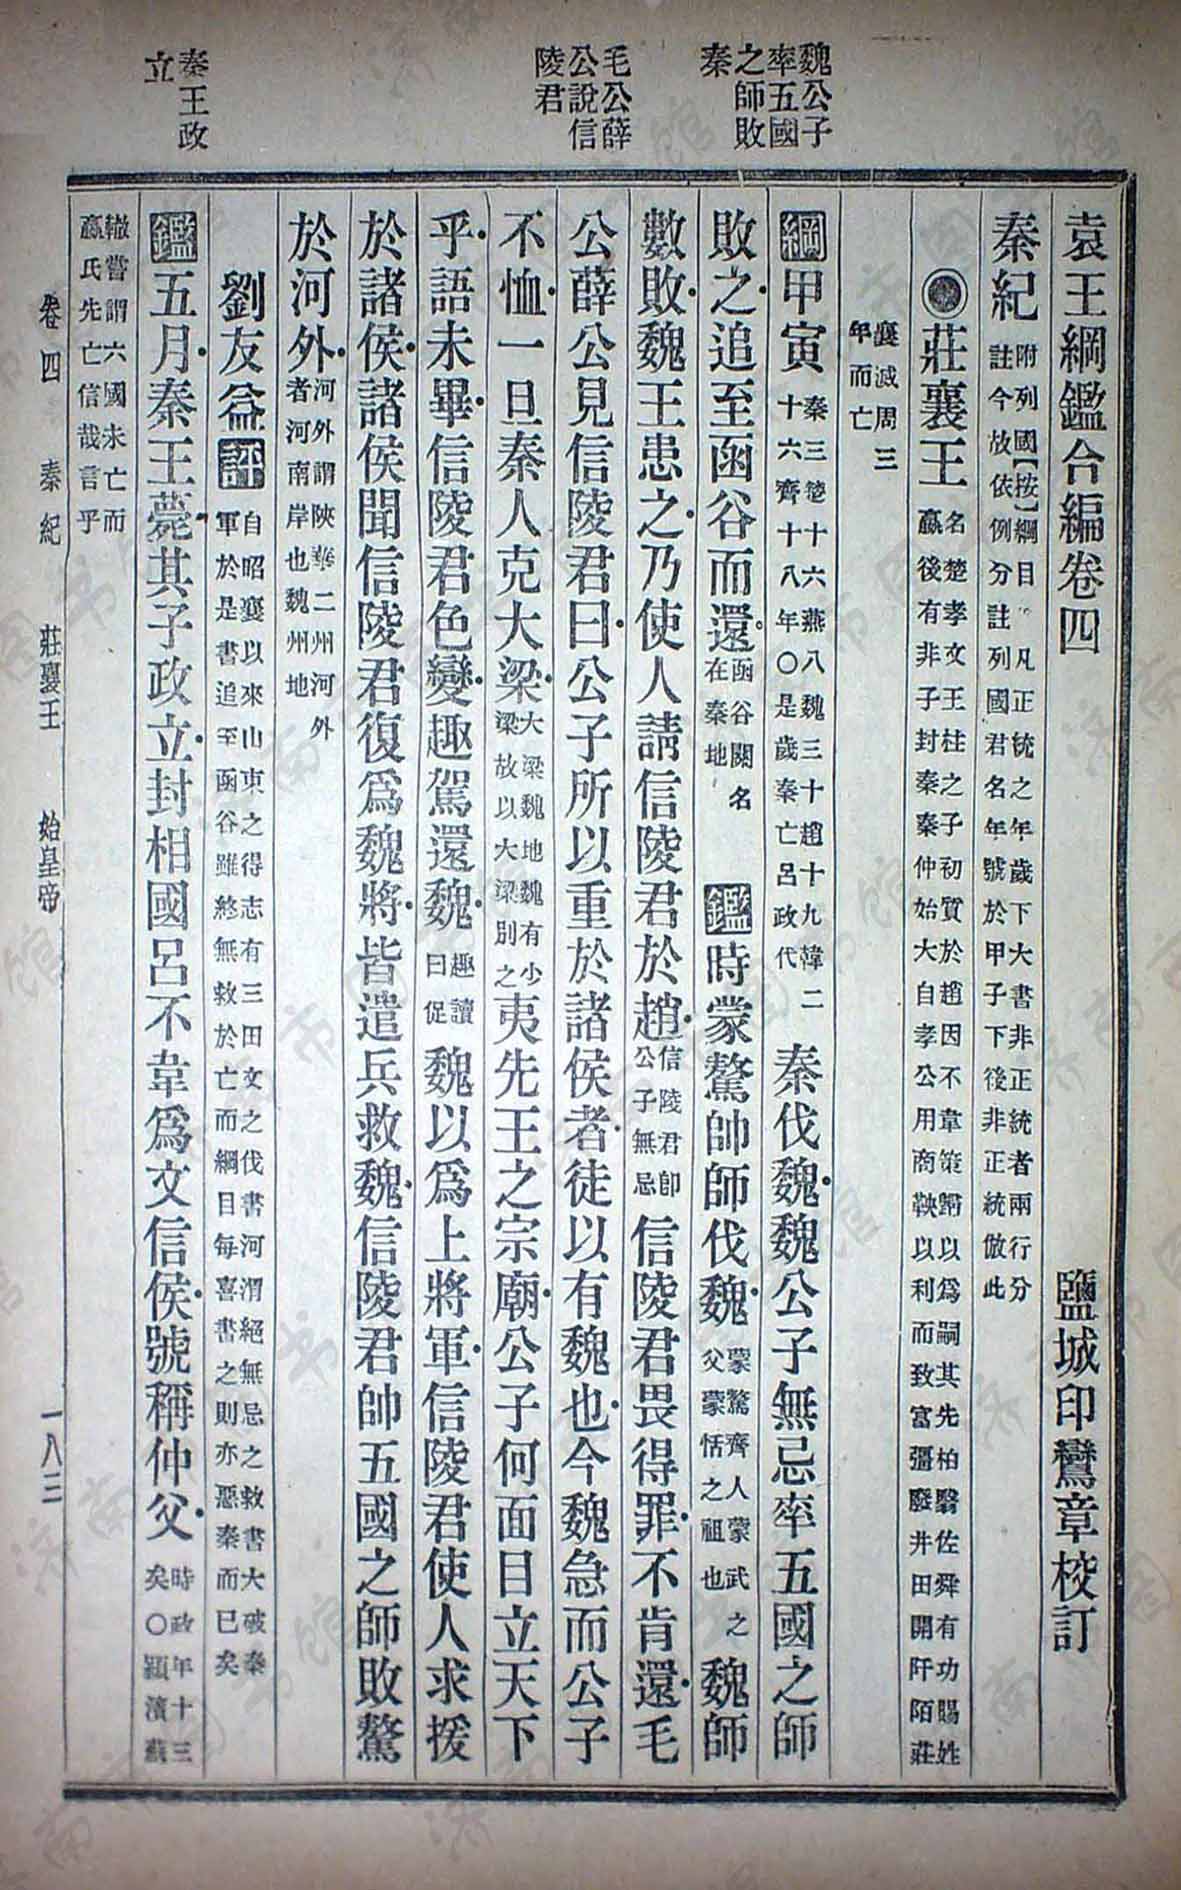 魏公子
率五國
之師敗
秦
毛公薛
公說信
陵君
秦王政
立
袁王綱鑑合編卷四　鹽城印鸞章校訂
秦紀附列國【按】綱目凡正統之年歲下大書非正統者兩行分
註今故依例分註列國君名年號於甲子下後非正統倣此
◉莊襄王名楚孝文王柱之子初質於趙因不韋策歸以爲嗣其先柏翳佐舜有功賜姓
嬴後有非子封秦秦仲始大自孝公用商鞅以利而致富彊廢井田開阡陌莊
襄滅周三
年而亡
綱甲寅秦三楚十六燕八魏三十趙十九韓二
十六齊十八年〇是歲秦亡呂政代秦伐魏魏公子無忌率五國之師
敗之追至函谷而還函谷關名
在秦地鑑時蒙驁帥師伐魏蒙驁齊人蒙武之
父蒙恬之祖也魏師
數敗魏王患之乃使人請信陵君於趙信陵君卽
公子無忌信陵君畏得罪不肯還毛
公薛公見信陵君曰公子所以重於諸侯者徒以有魏也今魏急而公子
不恤一旦秦人克大梁大梁魏地魏有少
梁故以大梁別之夷先王之宗廟公子何面目立天下
乎語未畢信陵君色變趣駕還魏趣讀
曰促魏以爲上將軍信陵君使人求援
於諸侯諸侯聞信陵君復爲魏將皆遣兵救魏信陵君帥五國之師敗驁
於河外河外謂陝華二州河外
者河南岸也魏州地
劉友益評自昭襄以來山東之得志有三田文之伐書河渭絕無忌之救書大破秦
軍於是書追至函谷雖終無救於亡而綱目每喜書之則亦惡秦而已矣
鑑五月秦王薨其子政立封相國呂不韋爲文信侯號稱仲父時政年十三
矣〇潁濱蘇
轍嘗謂六國未亡而
嬴氏先亡信哉言乎
卷四　秦紀　莊襄王　始皇帝　一八三